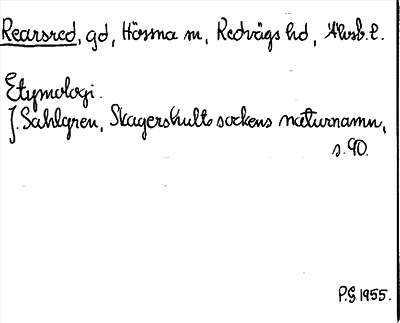 Rearsred, gd, Hössna sn, Redvägs hd, Älvsb. l.
Etymologi.
J. Sahlgren, Skagershults sockens naturnamn,
s. 90.
P.G 1955.